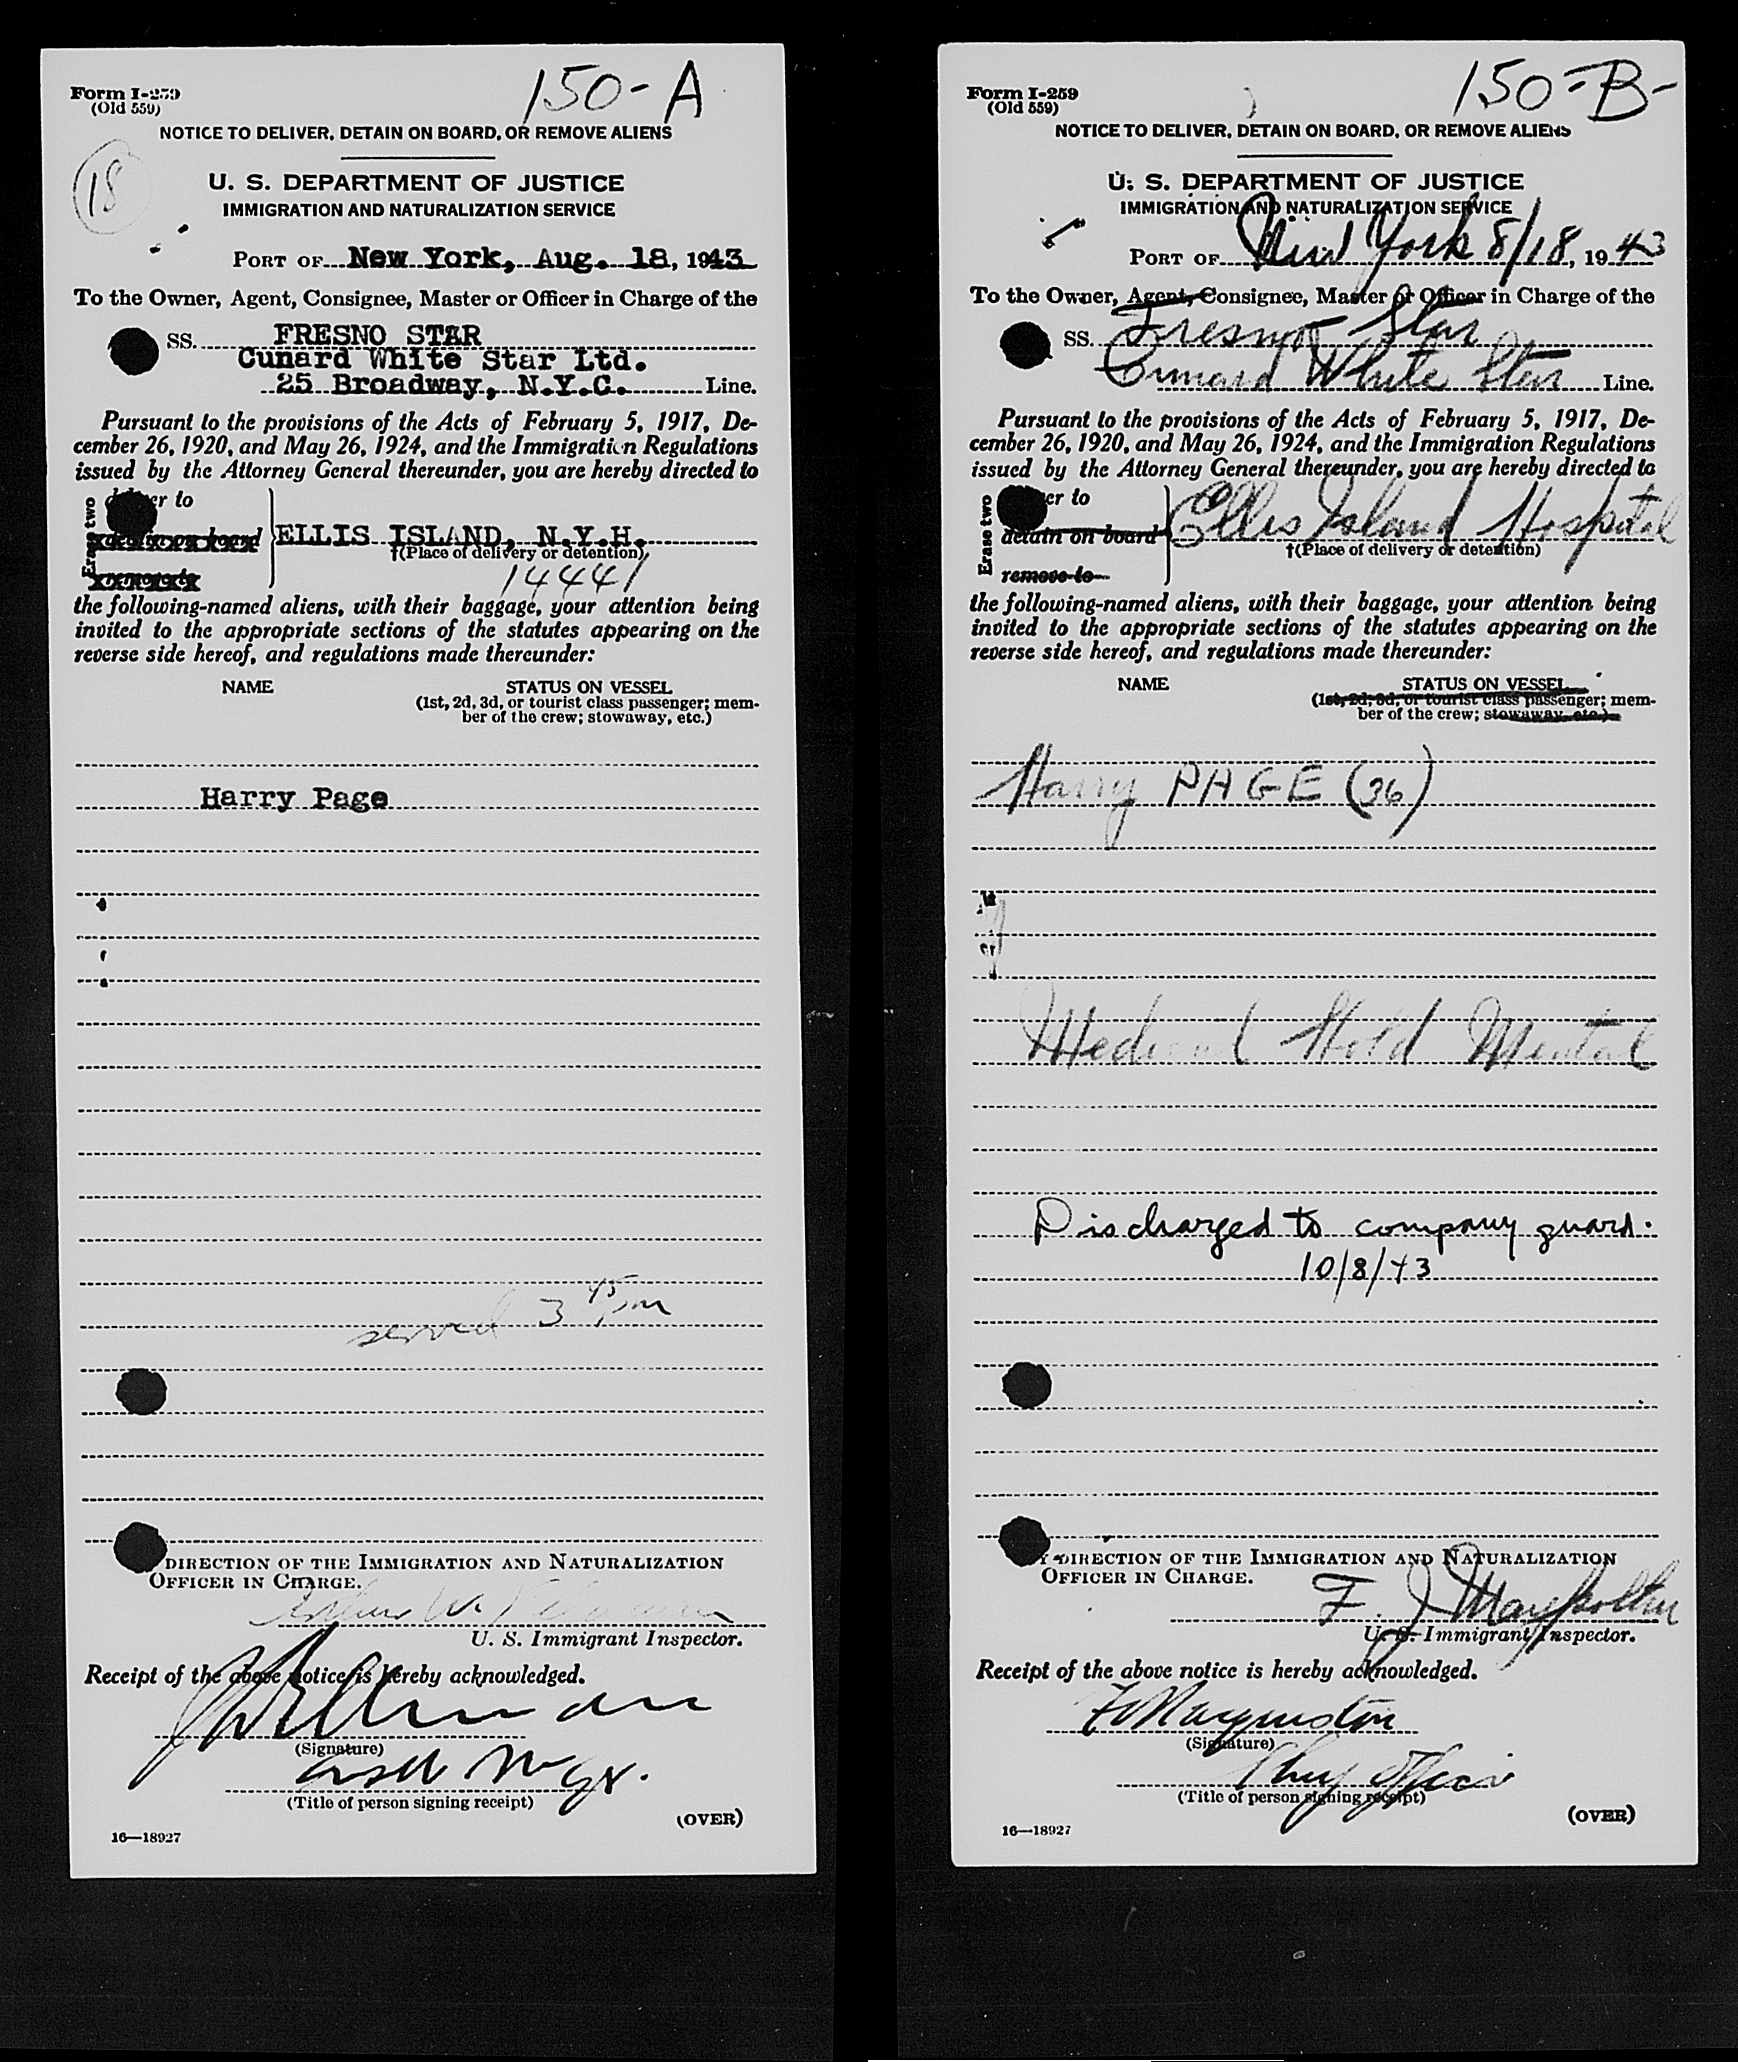 150-A
Form I-259
(Old 559)
NOTICE TO DELIVER, DETAIN ON BOARD, OR REMOVE ALIENS
18
U. S. DEPARTMENT OF JUSTICE
IMMIGRATION AND NATURALIZATION SERVICE
PORT OF New York, Aug. 18, 1943
To the Owner, Agent, Consignee, Master or Officer in Charge of the
SS. FRESNO STAR
Cunard White Star Ltd.
25 Broadway, N.Y.C. Line.
Pursuant to the provisions of the Acts of February 5, 1917, De-
cember 26, 1920, and May 26, 1924, and the Immigration Regulations
issued by the Attorney General thereunder, you are hereby directed to
Erase two
deliver to
detain on board ELLIS ISLAND, N.Y.H.
†(Place of delivery or detention)
remove to 14441
the following-named aliens, with their baggage, your attention being
invited to the appropriate sections of the statutes appearing on the
reverse side hereof, and regulations made thereunder:
NAME STATUS ON VESSEL
(1st, 2d, 3d, or tourist class passenger; mem-
ber of the crew; stowaway, etc.)
Harry Page
served 3 45 pm
DIRECTION OF THE IMMIGRATION AND NATURALIZATION
OFFICER IN CHARGE.
U. S. Immigrant Inspector.
Receipt of the above notice is hereby acknowledged.
(Signature)
(Title of person signing receipt)
(OVER)
16—18927
150-B-
Form I-259
(Old 559)
NOTICE TO DELIVER, DETAIN ON BOARD, OR REMOVE ALIENS
U. S. DEPARTMENT OF JUSTICE
IMMIGRATION AND NATURALIZATION SERVICE
PORT OF New York 8/18, 1943
To the Owner, Agent, Consignee, Master or Officer in Charge of the
SS. Fresno Star
Cunard White Star Line.
Pursuant to the provisions of the Acts of February 5, 1917, De-
cember 26, 1920, and May 26, 1924, and the Immigration Regulations
issued by the Attorney General thereunder, you are hereby directed to
Erase two
er to
detain on board Ellis Island Hospital
†(Place of delivery or detention)
remove to
the following-named aliens, with their baggage, your attention being
invited to the appropriate sections of the statutes appearing on the
reverse side hereof, and regulations made thereunder:
NAME STATUS ON VESSEL
(1st, 2d, 3d, or tourist class passenger; mem-
ber of the crew; stowaway, etc.)
Harry PAGE (36)
Medical Hold Mental
Discharged to company guard.
10/8/43
DIRECTION OF THE IMMIGRATION AND NATURALIZATION
OFFICER IN CHARGE.
F. J.
U. S. Immigrant Inspector.
Receipt of the above notice is hereby acknowledged.
(Signature)
Chief Officer
(Title of person signing receipt)
(OVER)
16—18927